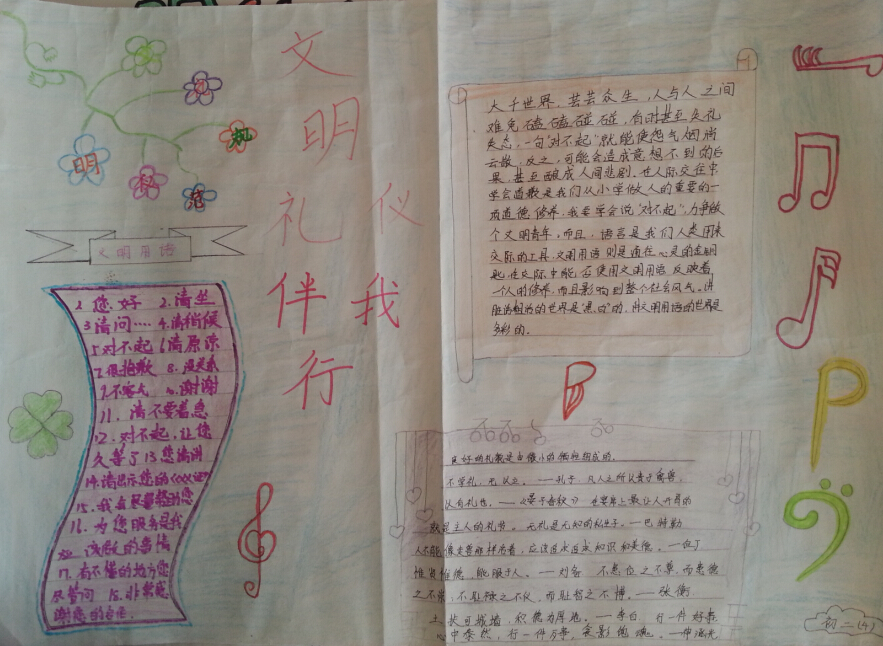 明
文
明
礼 仪
伴 我
行
文明用语
1.您好 2.请坐
3请问…… 4.请稍候
5.对不起 6请原谅
7.很抱歉 8.没关系
9.不客气 10.谢谢
11. 请不要着急
12.对不起,让您
久等了 13您请讲
14.请出示您的
15.我会尽量帮您
16.为您服务是我
应该做的事情
17.有不懂的地方您
尽管问 18.非常感
谢您的合作
大千世界,芸芸众生,人与人之间
难免磕磕碰碰,有时甚至失礼
失态,一句“对不起”就能使怨气烟消
云散,反之,可能会造成意想不到的后
果,甚至酿成人间悲剧。在人际交往中
学会道歉是我们从小学做人的重要的一
项道德修养,我要学会说“对不起”,力争做
个文明青年。而且,语言是我们人类用来
交际的工具,文明用语则是通往心灵的金钥
匙,在交际中能否使用文明用语,反映着
一个人的修养,而且影响到整个社会风气。讲
脏话粗话的世界是“黑白”的,讲文明用语的世界是
多彩的。
良好的礼貌是由微小的牺牲组成的。
不学礼,无以立。——孔子 凡人之所以贵于禽兽,
以有礼也。——《晏子春秋》
无礼是无知的私生子。——巴特勒
人不能像走兽那样活着,应该追求知识和美德。——但丁
惟贤惟德,能服于人。——刘备 不患位之不尊,而患德
之不崇;不耻禄之不伙,而耻智之不博。——张衡
土扶可城墙,积德为厚地。——李白 行一件好事,
心中泰然,行一件歹事,
初二(4)